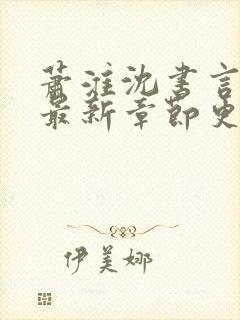 萧淮沈书言
最新章节更
伊美娜